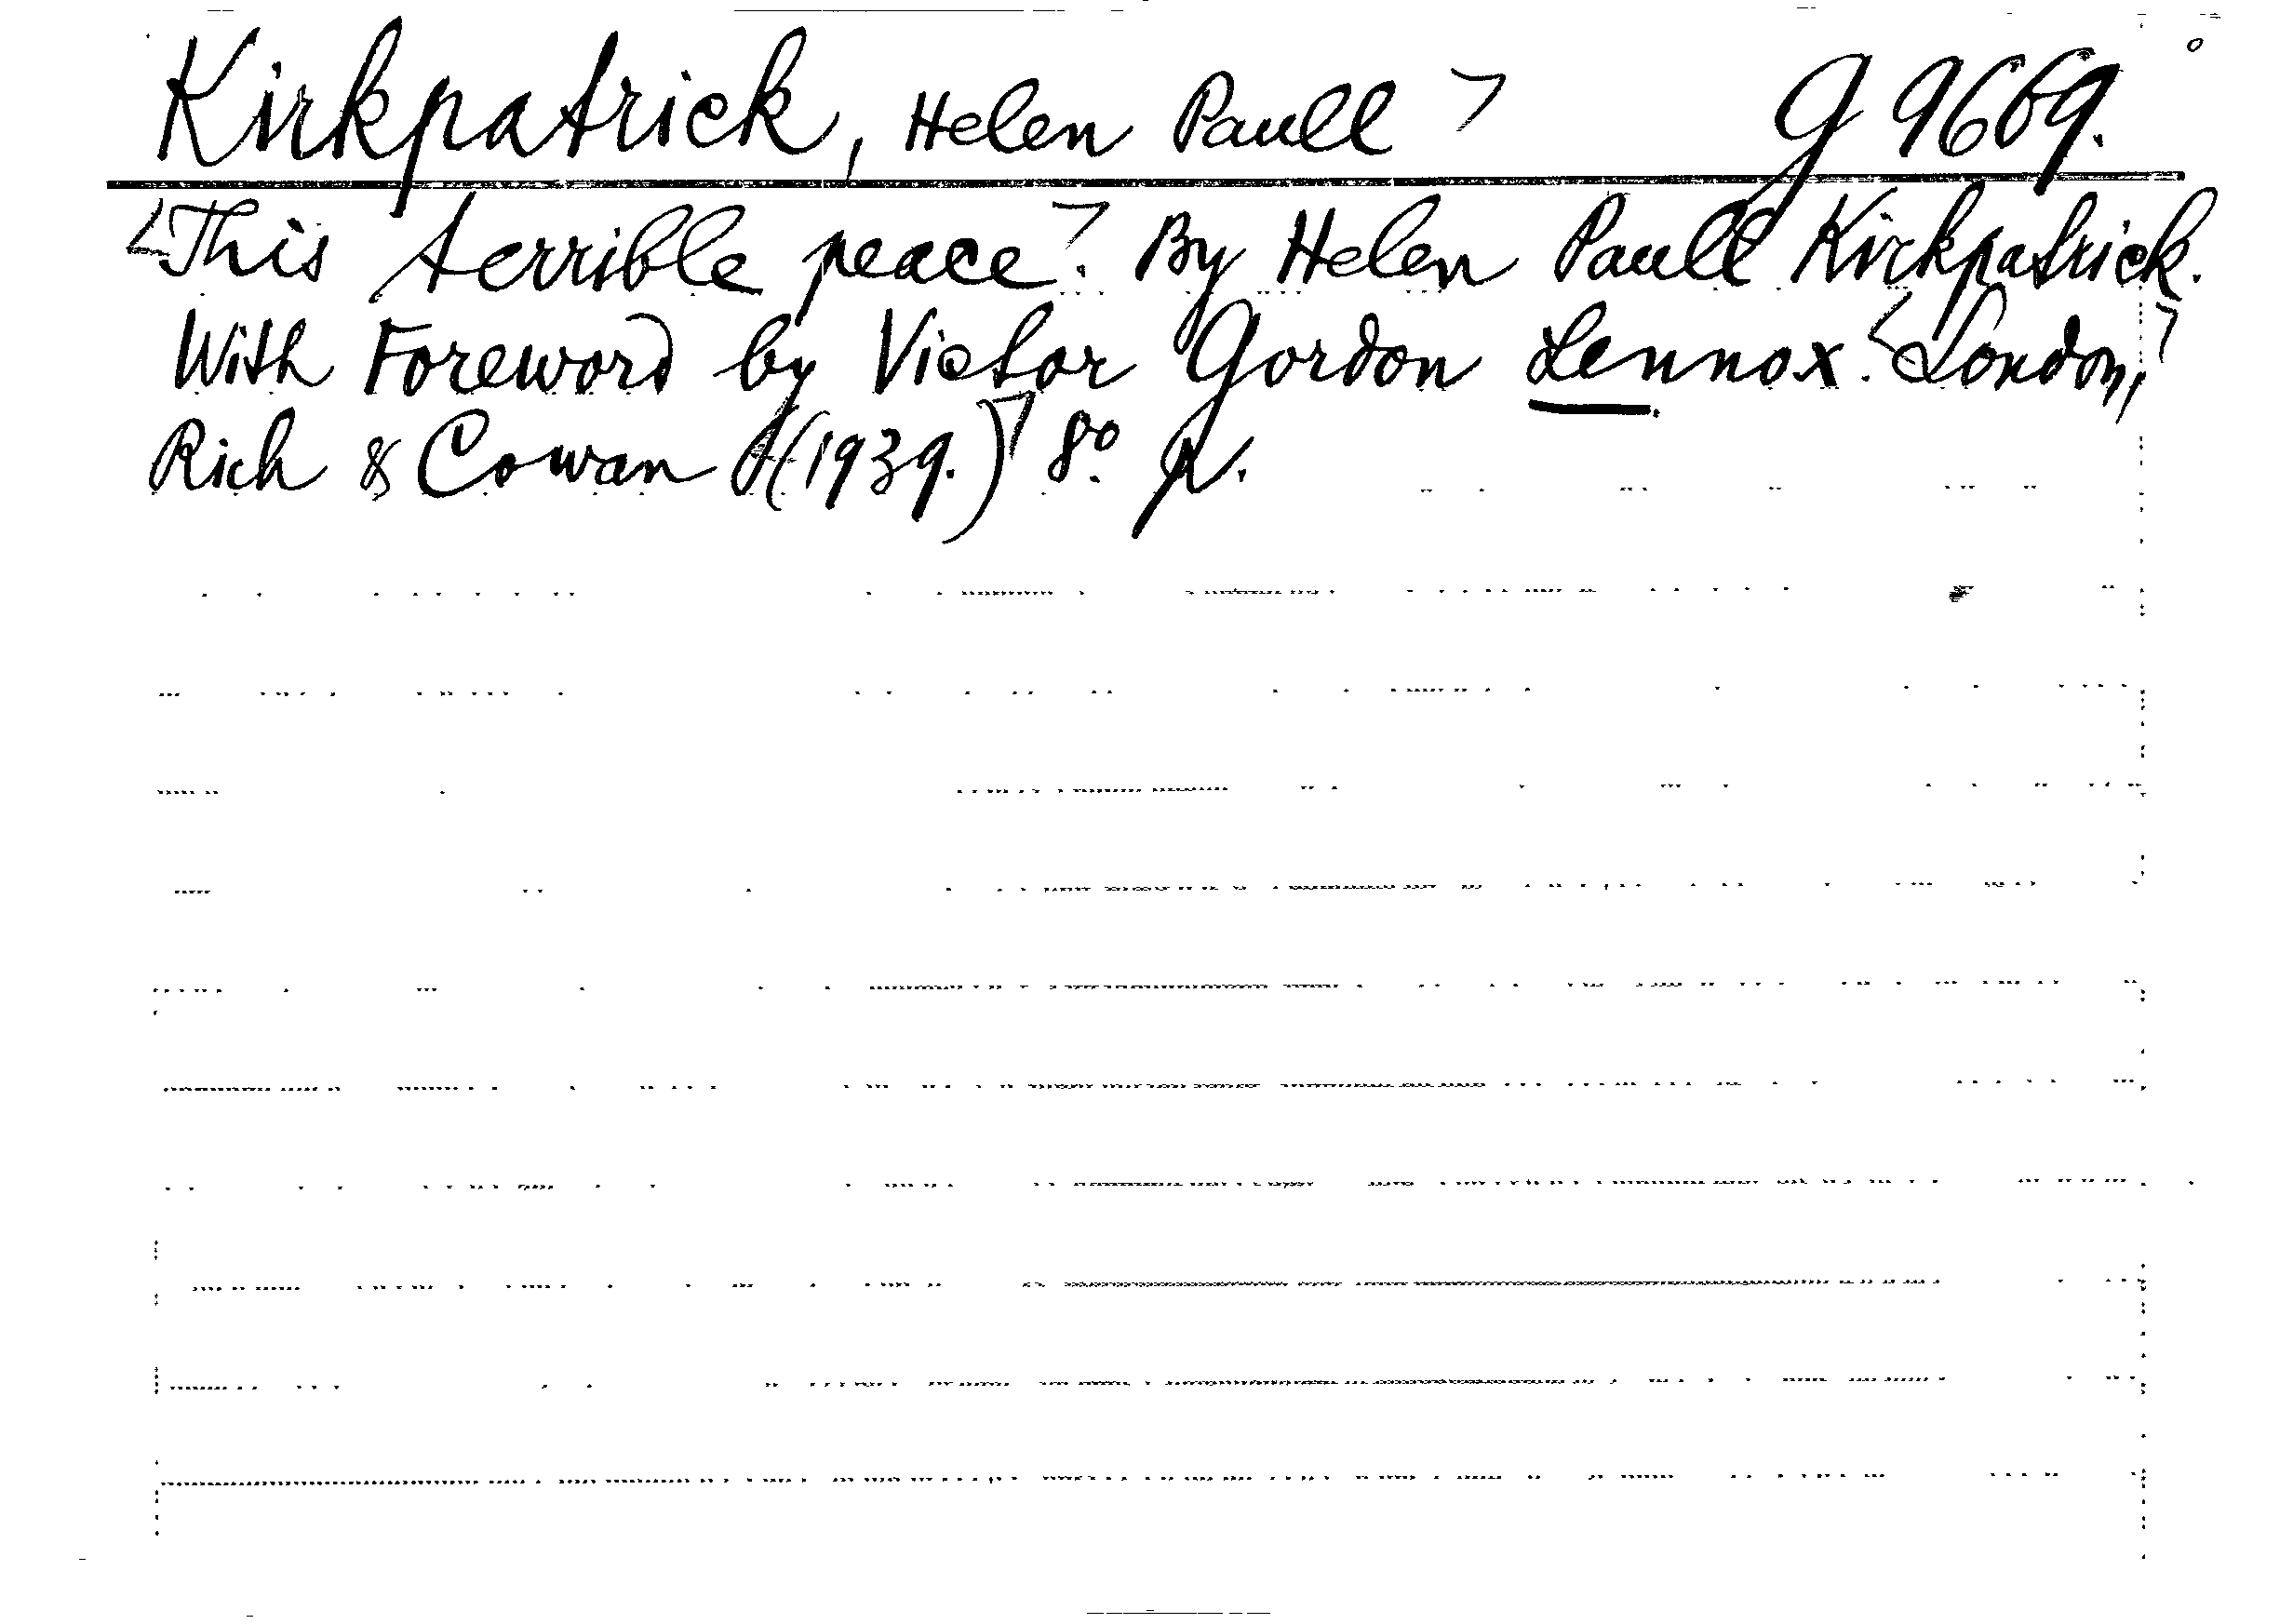 Kirkpatrick, Helen Paull > G 9669.
<This terrible peace>. By Helen Paull Kirkpatrick.
With Foreword by Victor Gordon Lennox. <London,>
Rich & Cowan (1939.)> 8º